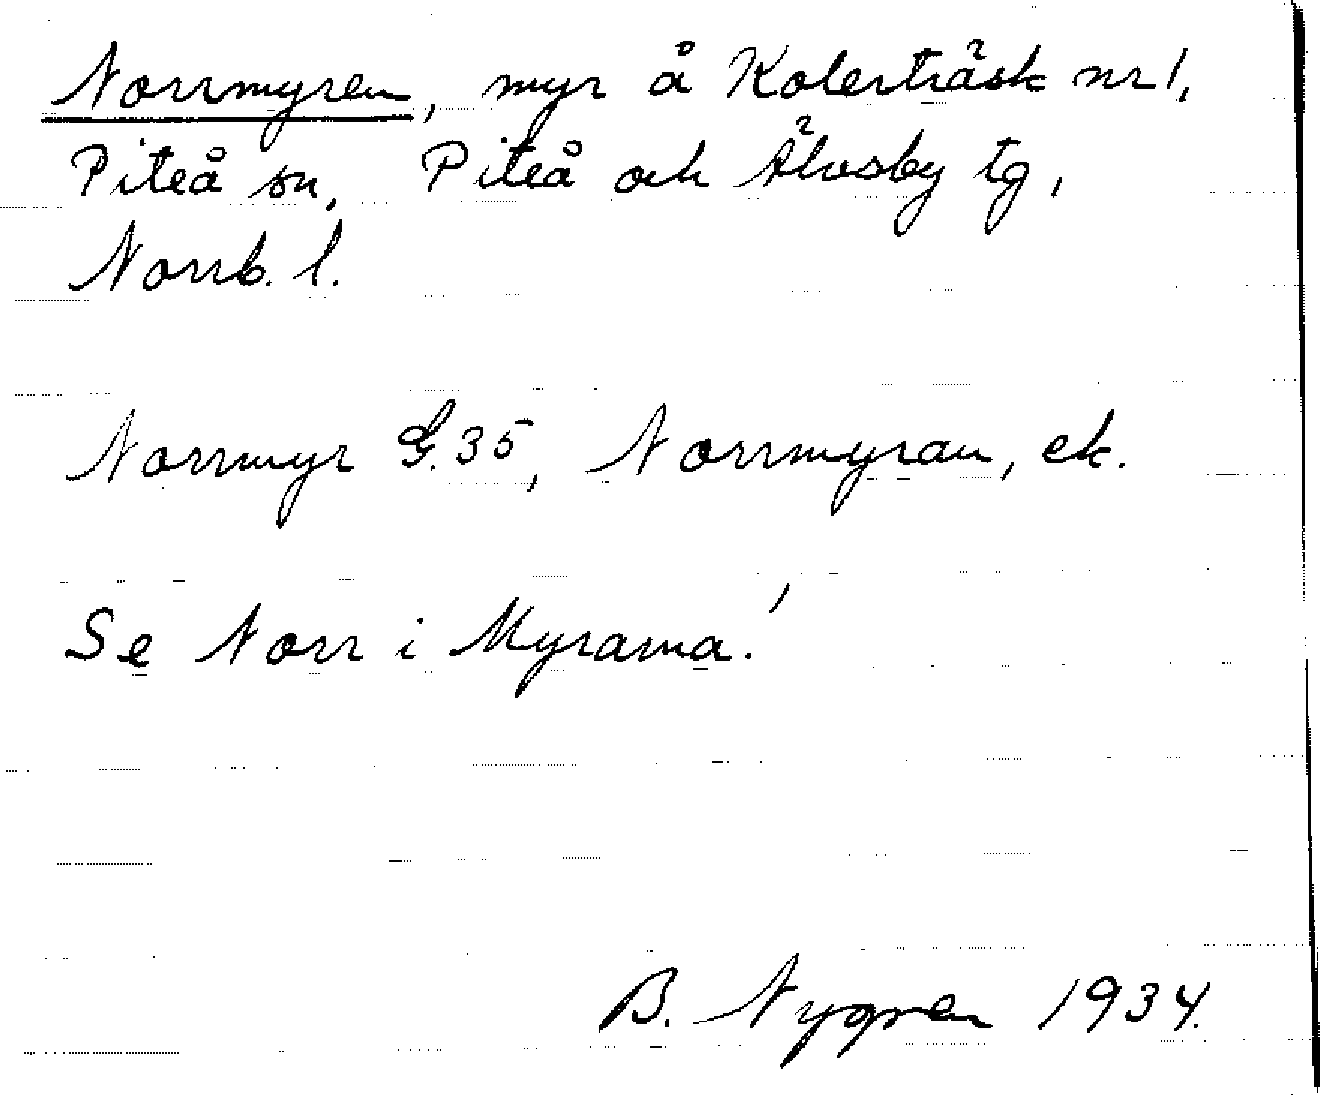 Norrmyren, myr å Kolerträsk nr 1,
Piteå sn, Piteå och Älvsby tg,
Norrb. l.
Norrmyr G. 35, Norrmyran, ek.
Se Norr i Myrarna!
B. Nygren 1934.